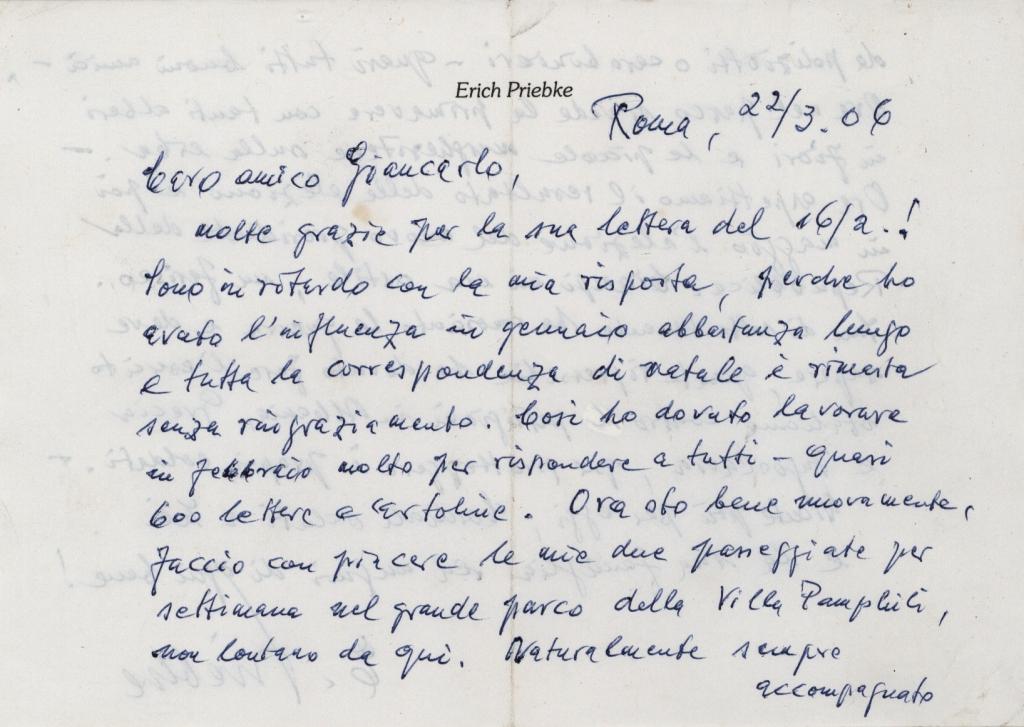 Erich Priebke
Roma, 22/3. 06
Caro amico Giancarlo,
molte grazie per la sua lettera del 16/2.!
Sono in ritardo con la mia risposta, perche ho
avuto l'influenza in gennaio abbastanza lungo
e tutta la correspondenza di natale è rimasta
senza ringraziamento. Cosi ho dovuto lavorare
in febbraio molto per rispondere a tutti – quasi
600 lettere e cartoline. Ora sto bene nuovamente,
faccio con piacere le mie due passeggiate per
settimana nel grande parco della Villa Pamphili,
non lontano da qui. Naturalmente sempre
accompagnato